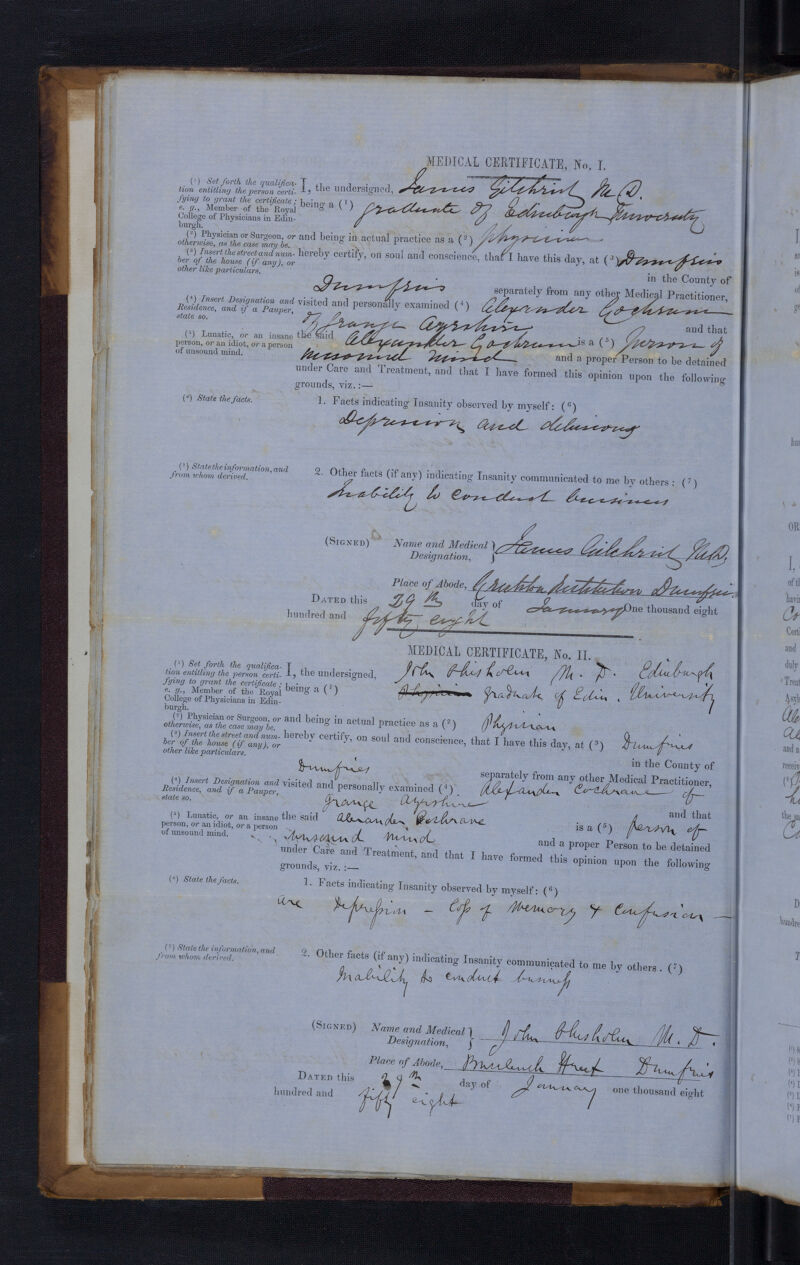 MEDICAL CERTIFICATE, No. I.
(¹) Set forth the qualifica-
tion entitling the person certi-
fying to grant the certificate;
e. g., Member of the Royal
College of Physicians in Edin-
burgh.
I, the undersigned, James Gilchrist M.D.
being a (¹) graduate of Edinburgh University
(²) Physician or Surgeon, or
otherwise, as the case may be.
and being in actual practice as a (²) physician
(³) Insert the street and num-
ber of the house (if any), or
other like particulars.
hereby certify, on soul and conscience, that I have this day, at (³) Dumfries
Dumfries in the County of
separately from any other Medical Practitioner,
(⁴) Insert Designation and
Residence, and if a Pauper,
state so.
visited and personally examined (⁴) Alexander Cochrane
of Grange Ayrshire and that
(⁵) Lunatic, or an insane
person, or an idiot, or a person
of unsound mind.
the said Alexander Cochrane is a (⁵) person of
unsound mind and a proper Person to be detained
under Care and Treatment, and that I have formed this opinion upon the following
grounds, viz.:—
(⁶) State the facts.
1. Facts indicating Insanity observed by myself: (⁶)
Depression and delusions
(⁷) State the information, and
from whom derived.
2. Other facts (if any) indicating Insanity communicated to me by others: (⁷)
Inability to conduct business
(SIGNED) Name and Medical Designation, James Gilchrist M.D.
Place of Abode, Crichton Institution Dumfries
DATED this 29th day of January One thousand eight
hundred and fifty eight
MEDICAL CERTIFICATE, No. II.
(¹) Set forth the qualifica-
tion entitling the person certi-
fying to grant the certificate;
e. g., Member of the Royal
College of Physicians in Edin-
burgh.
I, the undersigned, John Chisholm M.D. Edinburgh
being a (¹) graduate of Edin. University
(²) Physician or Surgeon, or
otherwise, as the case may be.
and being in actual practice as a (²) Physician
(³) Insert the street and num-
ber of the house (if any), or
other like particulars.
hereby certify, on soul and conscience, that I have this day, at (³) Dumfries
Dumfries in the County of
separately from any other Medical Practitioner,
(⁴) Insert Designation and
Residence, and if a Pauper,
state so.
visited and personally examined (⁴) Alexander Cochrane of
Grange Ayrshire and that
(⁵) Lunatic, or an insane
person, or an idiot, or a person
of unsound mind.
the said Alexander Cochrane is a (⁵) person of
unsound mind and a proper Person to be detained
under Care and Treatment, and that I have formed this opinion upon the following
grounds, viz.:—
(⁶) State the facts.
1. Facts indicating Insanity observed by myself: (⁶)
are depression - loss of memory & confusion -
(⁷) State the information, and
from whom derived.
2. Other facts (if any) indicating Insanity communicated to me by others. (⁷)
Inability to conduct business
(SIGNED) Name and Medical Designation, John Chisholm M.D.
Place of Abode, Buccleuch Street Dumfries
DATED this 29th day of January one thousand eight
hundred and fifty eight